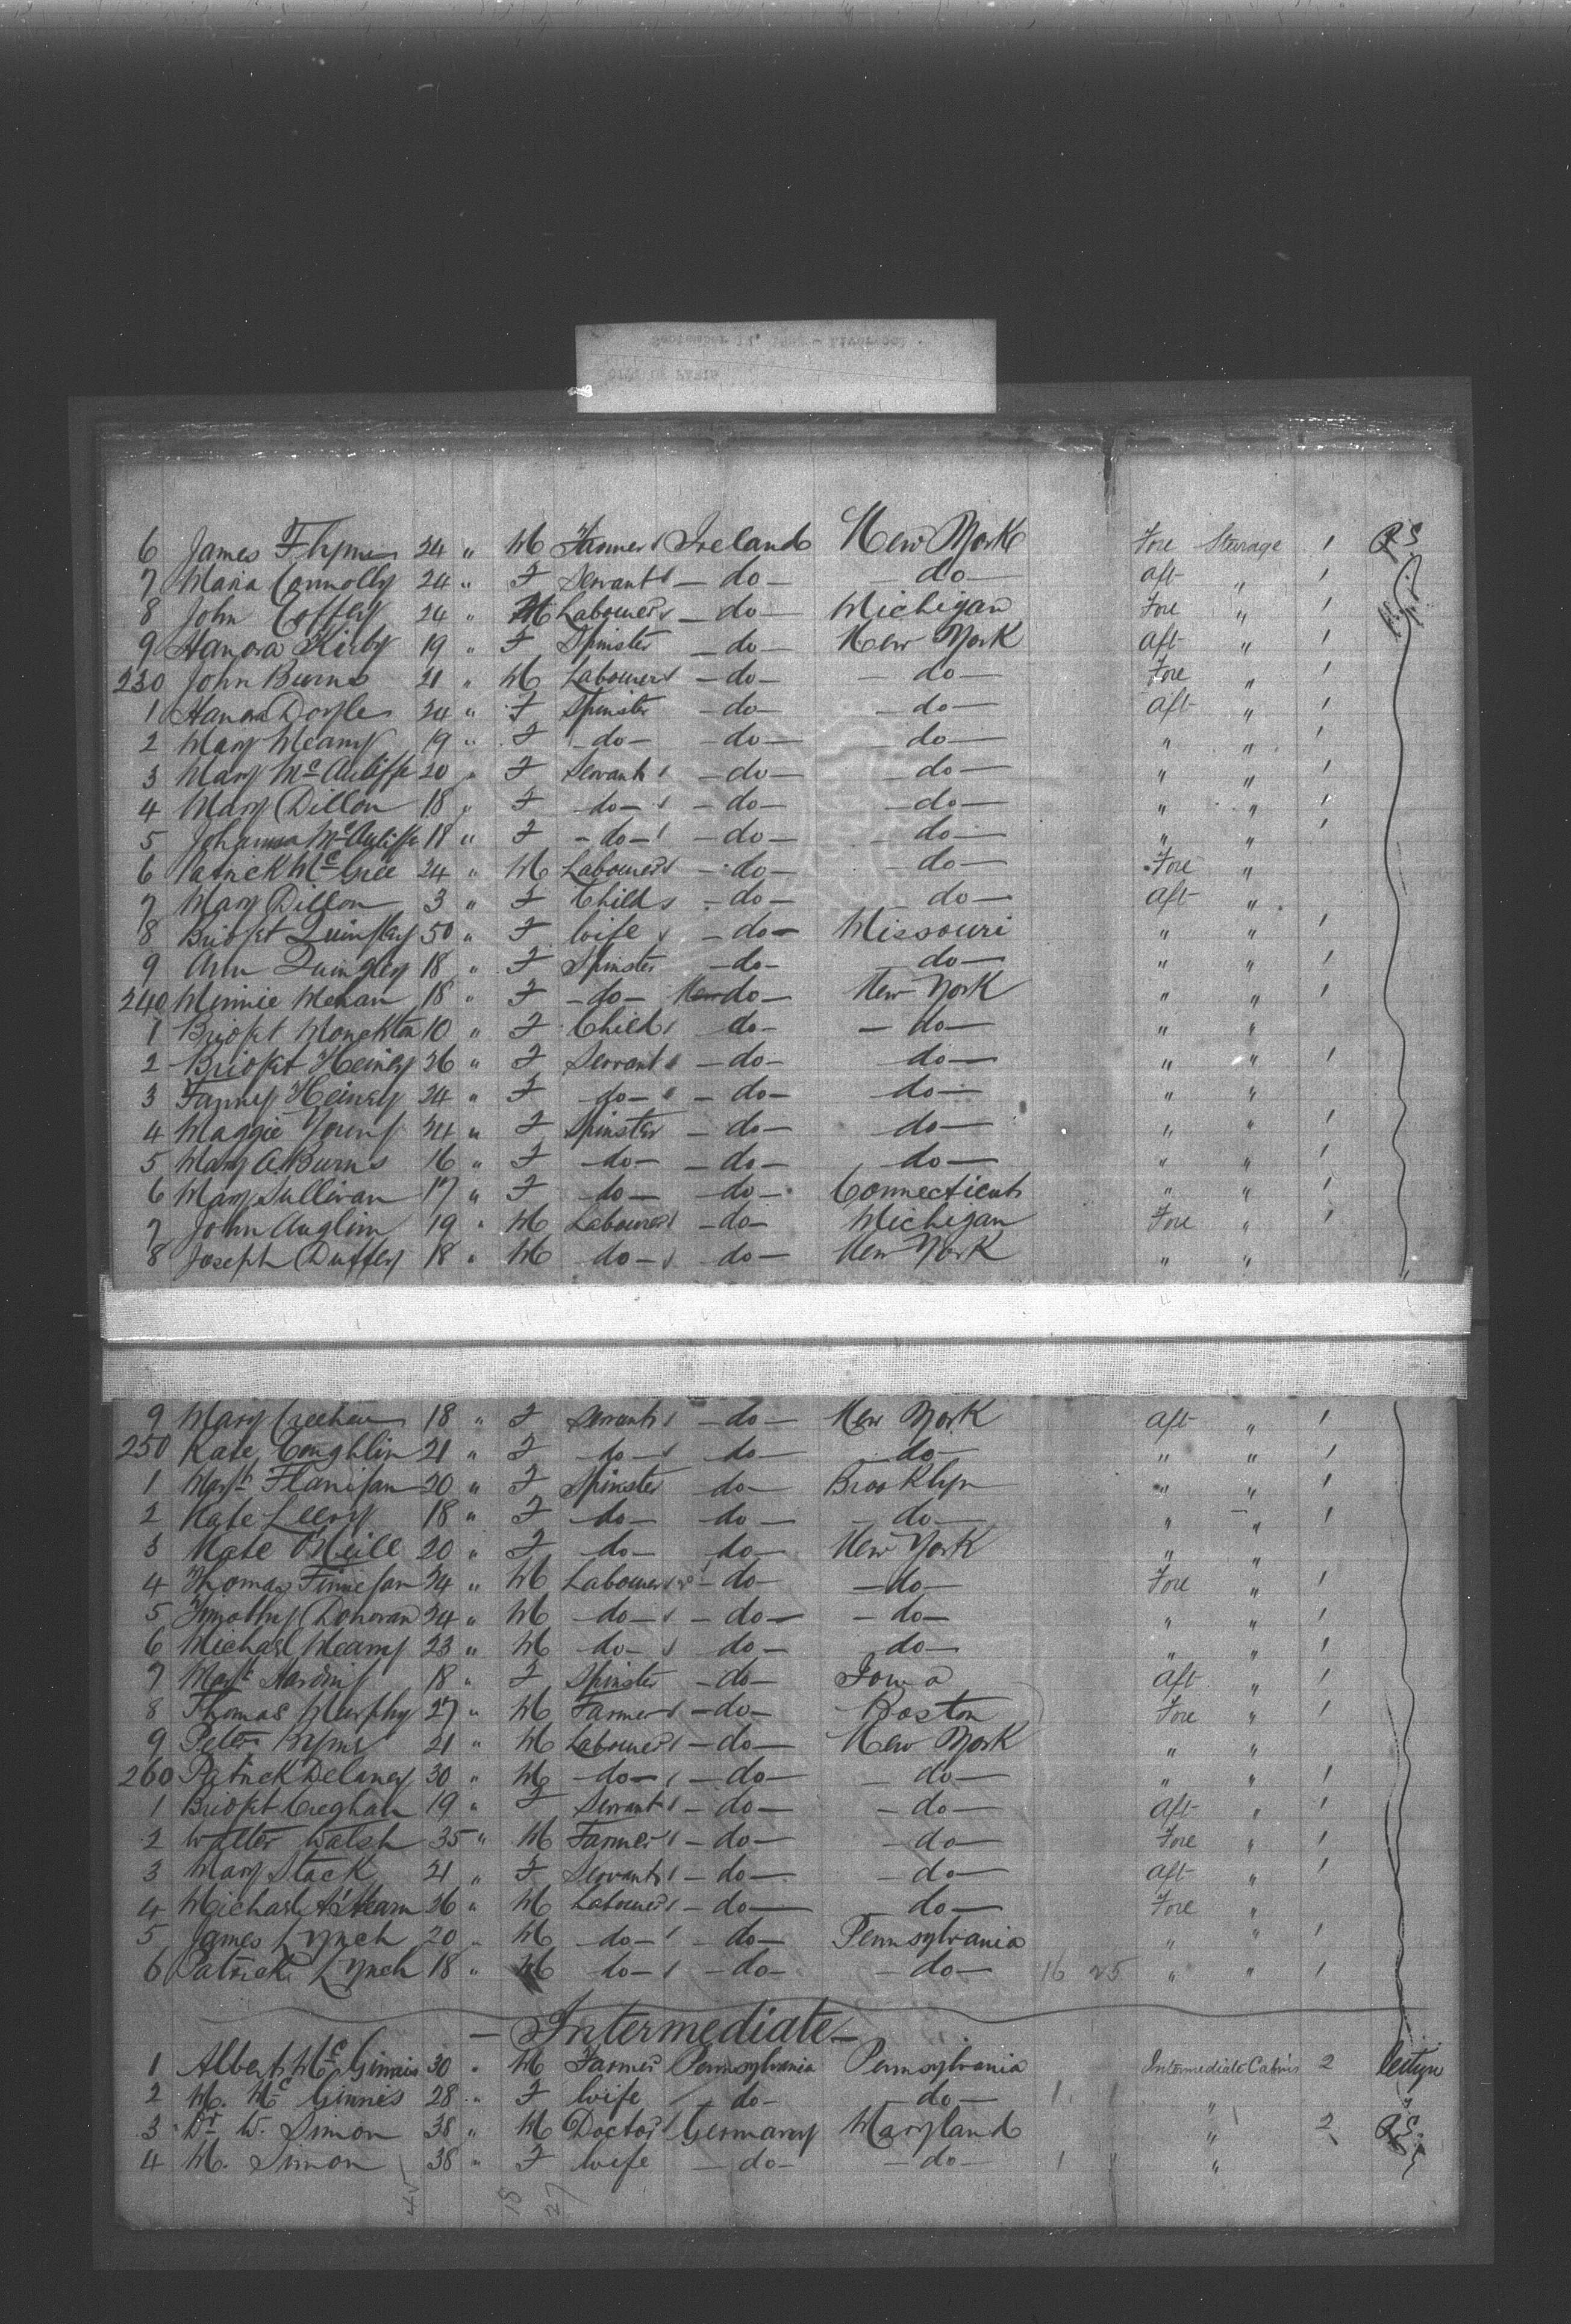 6 James Flynn 24 " M Farmer Ireland New York Fore Steerage 1 P.S.
7 Maria Connolly 24 " F Servant — do — — do — Aft " 1
8 John Coffey 24 " M Labourer — do — Michigan Fore " 1
9 Hanora Kirby 19 " F Spinster — do — New York Aft " 1
230 John Burns 21 " M Labourer — do — — do — Fore " 1
1 Hanora Doyle 24 " F Spinster — do — — do — Aft " 1
2 Mary 19 " F — do — — do — — do — " " 1
3 Mary McAuliffe 20 " F Servant — do — — do — " " 1
4 Mary Dillon 18 " F — do — — do — — do — " " 1
5 Johanna McAuliffe 18 " F — do — — do — — do — " " 1
6 Patrick McGee 24 " M Labourer — do — — do — Fore "
7 Mary Dillon 3 " F Child — do — — do — Aft "
8 Bridget Quigley 50 " F Wife — do — Missouri " " 1
9 Ann Quigley 18 " F Spinster — do — — do — " " 1
240 Minnie Mehan 18 " F — do — — do — New York " " 1
1 Bridget Monckton 10 " F Child — do — — do — " "
2 Bridget Heiney 26 " F Servant — do — — do — " " 1
3 Fanny Heiney 24 " F — do — — do — — do — " "
4 Maggie Young 24 " F Spinster — do — — do — " " 1
5 Mary A Burns 16 " F — do — — do — — do — " " 1
6 Mary Sullivan 17 " F — do — — do — Connecticut " " 1
7 John Anglim 19 " M Labourer — do — Michigan Fore " 1
8 Joseph Duffey 18 " M — do — — do — New York " "
9 Mary Creehan 18 " F Servant — do — New York Aft " 1
250 Kate Coughlin 21 " F — do — — do — — do — " " 1
1 Margt Flanigan 20 " F Spinster — do — Brooklyn " " 1
2 Kate Leery 18 " F — do — — do — — do — " " 1
3 Kate O'Neill 20 " F — do — — do — New York " "
4 Thomas Finnegan 24 " M Labourer — do — — do — Fore " 1
5 Timothy Donovan 24 " M — do — — do — — do — " " 1
6 Michael 23 " M — do — — do — — do — " " 1
7 Margt Harding 18 " F Spinster — do — Iowa Aft " 1
8 Thomas Murphy 27 " M Farmer — do — Boston Fore " 1
9 Peter Byrne 21 " M Labourer — do — New York " "
260 Patrick Delaney 30 " M — do — — do — — do — " " 1
1 Bridget Creghan 19 " F Servant — do — — do — Aft " 1
2 Walter Walsh 35 " M Farmer — do — — do — Fore " 1
3 Mary Stack 21 " F Servant — do — — do — Aft " 1
4 Michael A'Hearn 26 " M Labourer — do — — do — Fore "
5 James Lynch 20 " M — do — — do — Pennsylvania " " 1
6 Patrick Lynch 18 " M — do — — do — — do — 16 25 " " 1
— Intermediate —
1 Albert McGinnis 30 " M Farmer Pennsylvania Pennsylvania Intermediate Cabins 2
2 M. McGinnis 28 " F Wife — do — — do — 1 "
3 Dr W. Simon 38 " M Doctor Germany Maryland " 2 P.S.
4 M. Simon 38 " F Wife — do — — do — 1 "
45 18 27